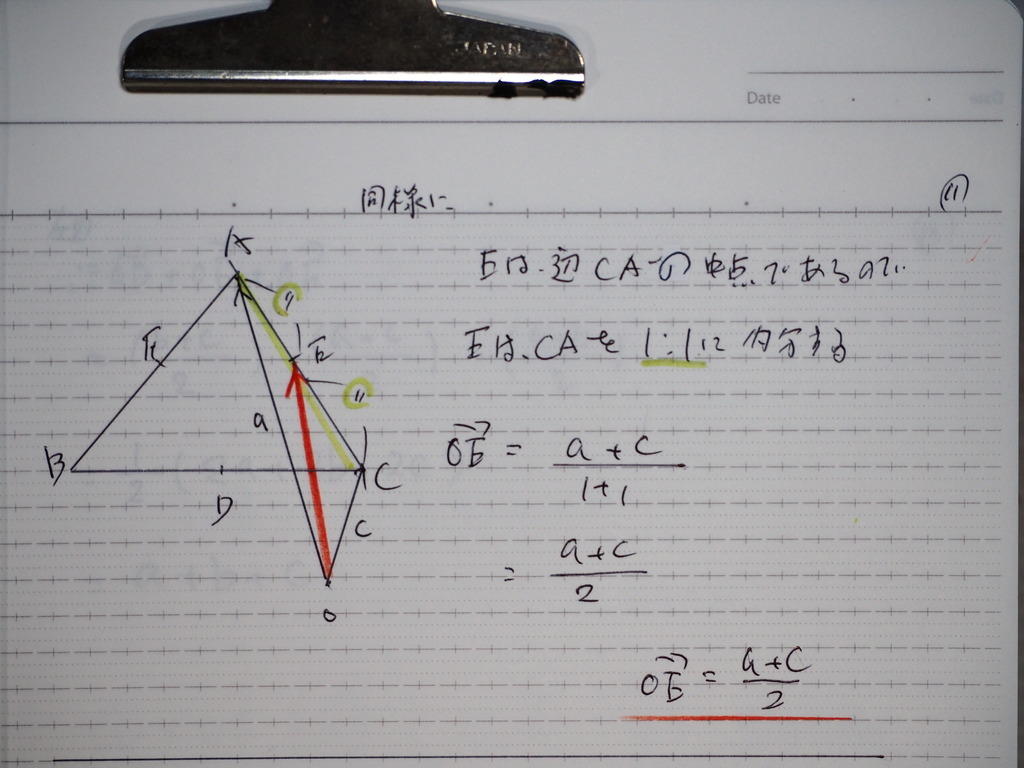 JAPAN
Date
同様に
⑪
Eは、辺CAの中点であるので、
Eは、CAを1:1に内分する
A
F
①
E
①
a
B
D
C
c
O
OE = a + c / 1+1
= a+c / 2
OE = a+c / 2